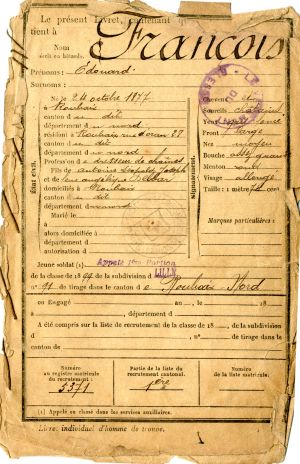 Le présent Livret, contenant
tient à François
Nom
écrit en bâtarde.
Prénoms : Edouard.
Surnoms :
Né le 24 octobre 1877
à Roubaix
canton du dit
département du nord
résidant à Roubaix rue
canton du dit
département du nord
Profession de dresseur de chaînes
Fils de antoine Léopold Joseph
et de
domiciliés à Roubaix
canton du dit
département du nord
Marié le
à
alors domiciliée à
département d
autorisation d
État civil.
Signalement.
Cheveux et
Sourcils châtains
Yeux
Front large
Nez moyen
Bouche
Menton rond
Visage allongé
Taille : 1 mètre cent.
Marques particulières :
Jeune soldat (1) Appelé 1ère Portion
de la classe de 1897 de la subdivision d LILLE
n° 91 de tirage dans le canton de Roubaix-Nord
ou Engagé à , le 18
à , département d
A été compris sur la liste de recrutement de la classe de 18 , de la subdivision
d , n° de tirage dans le
canton de
Numéro
au registre matricule
du recrutement :
5371
Partie de la liste
du recrutement cantonal.
1ère
Numéro
de la liste matricule.
(1) Appelé ou classé dans les services auxiliaires.
Livret individuel d'homme de troupe.